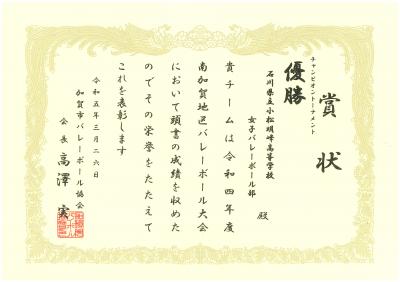 賞状
チャンピオントーナメント
優勝
石川県立小松明峰高等学校
女子バレーボール部
殿
貴チームは令和四年度
南加賀地区バレーボール大会
において頭書の成績を収めた
のでその栄誉をたたえて
これを表彰します
令和五年三月二六日
加賀市バレーボール協会
会長 高澤 実